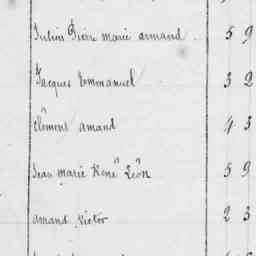 Julien Pierre marie armand 59
Jacques Emmanuel 32
clément amand 43
Jean marie René Léon 59
amand victor 23